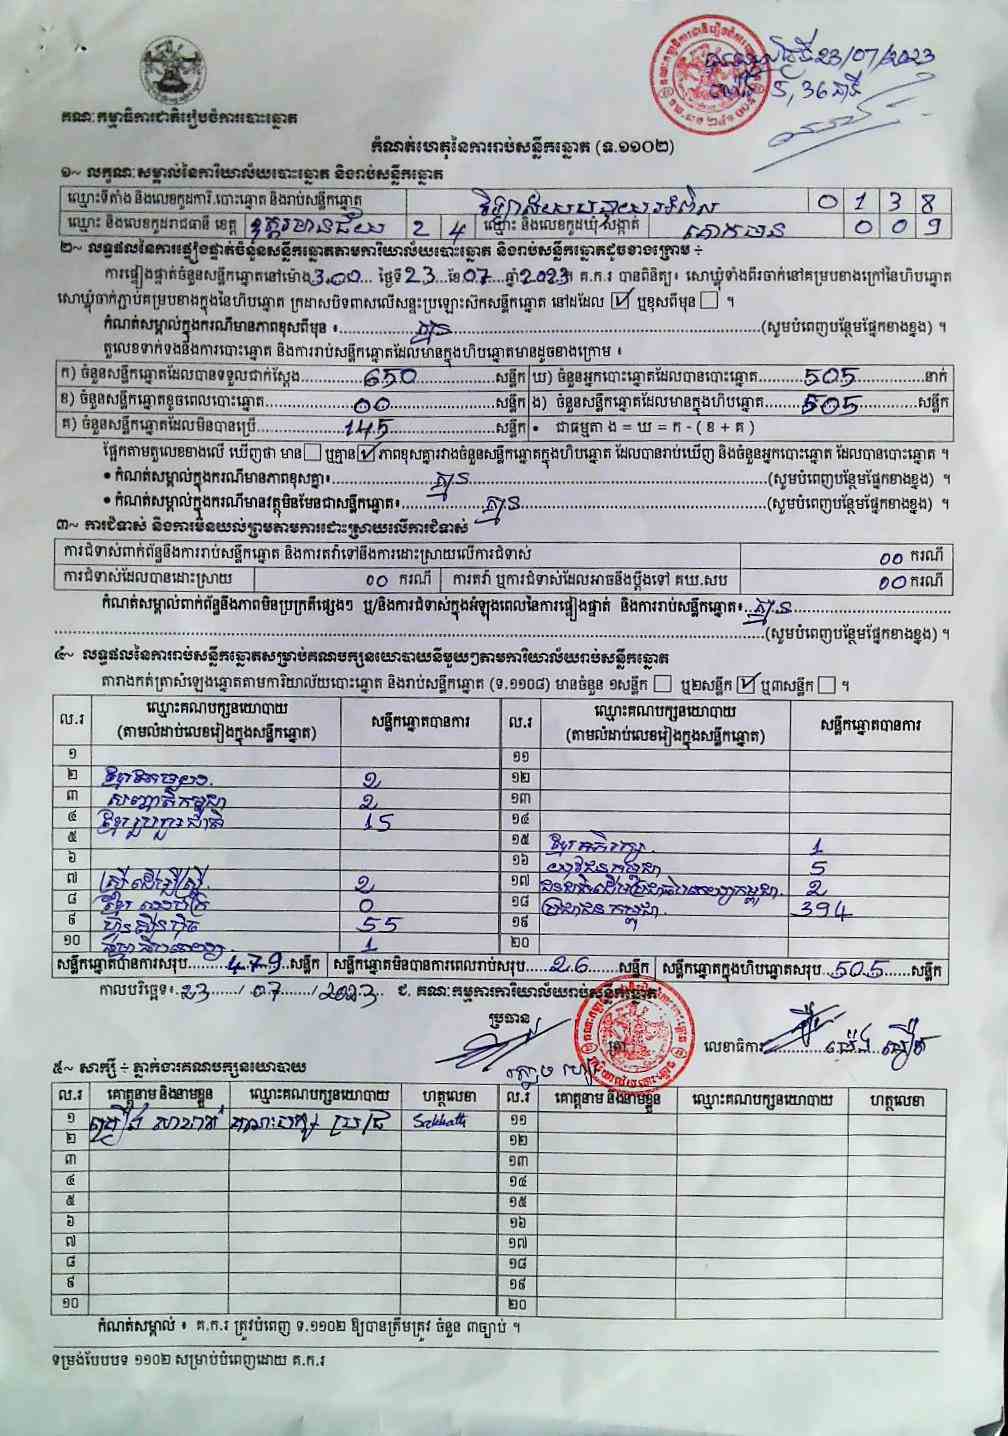 23/07/2023
5, 36 នាទី
គណៈកម្មាធិការជាតិរៀបចំការបោះឆ្នោត
កំណត់ហេតុនៃការរាប់សន្លឹកឆ្នោត (ទ.១១០២)
១~ លក្ខណៈសម្គាល់នៃការិយាល័យបោះឆ្នោត និងរាប់សន្លឹកឆ្នោត
ឈ្មោះទីតាំង និងលេខកូដការិ.បោះឆ្នោត និងរាប់សន្លឹកឆ្នោត 0 1 3 8
ឈ្មោះ និងលេខកូដរាជធានី ខេត្ត ឧត្តរមានជ័យ 2 4 ឈ្មោះ និងលេខកូដឃុំ/សង្កាត់ គោកមន 0 0 9
២~ លទ្ធផលនៃការផ្ទៀងផ្ទាត់ចំនួនសន្លឹកឆ្នោតតាមការិយាល័យបោះឆ្នោត និងរាប់សន្លឹកឆ្នោតដូចខាងក្រោម ÷
ការផ្ទៀងផ្ទាត់ចំនួនសន្លឹកឆ្នោតនៅម៉ោង 3.00 ថ្ងៃទី 23 ខែ 07 ឆ្នាំ 2023 ។ គ.ក.រ បានពិនិត្យ៖ សោឃ្លុំទាំងពីរចាក់នៅគម្របខាងក្រៅនៃហិបឆ្នោត
សោឃ្លុំចាក់ភ្ជាប់គម្របខាងក្នុងនៃហិបឆ្នោត ក្រដាសបិទពាសលើសន្ទះប្រឡោះសឹកសន្លឹកឆ្នោត នៅដដែល ☑ ឬខុសពីមុន ☐ ។
កំណត់សម្គាល់ក្នុងករណីមានភាពខុសពីមុន ៖ គ្មាន (សូមបំពេញបន្ថែមផ្នែកខាងខ្នង) ។
តួលេខទាក់ទងនឹងការបោះឆ្នោត និងការរាប់សន្លឹកឆ្នោតដែលមានក្នុងហិបឆ្នោតមានដូចខាងក្រោម ៖
ក) ចំនួនសន្លឹកឆ្នោតដែលបានទទួលជាក់ស្តែង 650 សន្លឹក ឃ) ចំនួនអ្នកបោះឆ្នោតដែលបានបោះឆ្នោត 505 នាក់
ខ) ចំនួនសន្លឹកឆ្នោតខូចពេលបោះឆ្នោត 00 សន្លឹក ង) ចំនួនសន្លឹកឆ្នោតដែលមានក្នុងហិបឆ្នោត 505 សន្លឹក
គ) ចំនួនសន្លឹកឆ្នោតដែលមិនបានប្រើ 145 សន្លឹក • ជាធម្មតា ង = ឃ = ក - ( ខ + គ )
ផ្អែកតាមតួលេខខាងលើ ឃើញថា មាន ☐ ឬគ្មាន ☑ ភាពខុសគ្នារវាងចំនួនសន្លឹកឆ្នោតក្នុងហិបឆ្នោត ដែលបានរាប់ឃើញ និងចំនួនអ្នកបោះឆ្នោត ដែលបានបោះឆ្នោត ។
• កំណត់សម្គាល់ក្នុងករណីមានភាពខុសគ្នា៖ គ្មាន (សូមបំពេញបន្ថែមផ្នែកខាងខ្នង) ។
• កំណត់សម្គាល់ក្នុងករណីមានវត្ថុមិនមែនជាសន្លឹកឆ្នោត៖ គ្មាន (សូមបំពេញបន្ថែមផ្នែកខាងខ្នង) ។
៣~ ការជំទាស់ និងការមិនយល់ព្រមតាមការដោះស្រាយលើការជំទាស់
ការជំទាស់ពាក់ព័ន្ធនឹងការរាប់សន្លឹកឆ្នោត និងការតវ៉ាទៅនឹងការដោះស្រាយលើការជំទាស់ 00 ករណី
ការជំទាស់ដែលបានដោះស្រាយ 00 ករណី ការតវ៉ា ឬការជំទាស់ដែលអាចនឹងប្តឹងទៅ គឃ.សប 00 ករណី
កំណត់សម្គាល់ពាក់ព័ន្ធនឹងភាពមិនប្រក្រតីផ្សេងៗ ឬ/និងការជំទាស់ក្នុងអំឡុងពេលនៃការផ្ទៀងផ្ទាត់ និងការរាប់សន្លឹកឆ្នោត៖ គ្មាន
(សូមបំពេញបន្ថែមផ្នែកខាងខ្នង) ។
៤~ លទ្ធផលនៃការរាប់សន្លឹកឆ្នោតសម្រាប់គណបក្សនយោបាយនីមួយៗតាមការិយាល័យរាប់សន្លឹកឆ្នោត
តារាងកត់ត្រាសំឡេងឆ្នោតតាមការិយាល័យបោះឆ្នោត និងរាប់សន្លឹកឆ្នោត (ទ.១១០៨) មានចំនួន ១សន្លឹក ☐ ឬ២សន្លឹក ☑ ឬ៣សន្លឹក ☐ ។
ល.រ ឈ្មោះគណបក្សនយោបាយ (តាមលំដាប់លេខរៀងក្នុងសន្លឹកឆ្នោត) សន្លឹកឆ្នោតបានការ ល.រ ឈ្មោះគណបក្សនយោបាយ (តាមលំដាប់លេខរៀងក្នុងសន្លឹកឆ្នោត) សន្លឹកឆ្នោតបានការ
១ ១១
២ 2 ១២
៣ សញ្ជាតិកម្ពុជា 2 ១៣
៤ ខ្មែររួបរួមជាតិ 15 ១៤
៥ ១៥ ខ្មែរអភិរក្ស 1
៦ ១៦ យុវជនកម្ពុជា 5
៧ ស្រ្តីដើម្បីស្រ្តី 2 ១៧ ជនជាតិដើមប្រជាធិបតេយ្យកម្ពុជា 2
៨ ខ្មែរឈប់ក្រ 0 ១៨ ប្រជាជនកម្ពុជា 394
៩ ហ៊្វុនស៊ិនប៉ិច 55 ១៩
១០ 1 ២០
សន្លឹកឆ្នោតបានការសរុប 479 សន្លឹក សន្លឹកឆ្នោតមិនបានការពេលរាប់សរុប 26 សន្លឹក សន្លឹកឆ្នោតក្នុងហិបឆ្នោតសរុប 505 សន្លឹក
កាលបរិច្ឆេទ៖ 23 / 07 / 2023 ជ. គណៈកម្មការការិយាល័យរាប់សន្លឹកឆ្នោត
ប្រធាន
ត្រា លេខាធិការ
៥~ សាក្សី ÷ ភ្នាក់ងារគណបក្សនយោបាយ
ល.រ គោត្តនាម និងនាមខ្លួន ឈ្មោះគណបក្សនយោបាយ ហត្ថលេខា ល.រ គោត្តនាម និងនាមខ្លួន ឈ្មោះគណបក្សនយោបាយ ហត្ថលេខា
១ គណៈបក្ស ១១
២ ១២
៣ ១៣
៤ ១៤
៥ ១៥
៦ ១៦
៧ ១៧
៨ ១៨
៩ ១៩
១០ ២០
កំណត់សម្គាល់ ៖ គ.ក.រ ត្រូវបំពេញ ទ.១១០២ ឱ្យបានត្រឹមត្រូវ ចំនួន ៣ច្បាប់ ។
ទម្រង់បែបបទ ១១០២ សម្រាប់បំពេញដោយ គ.ក.រ